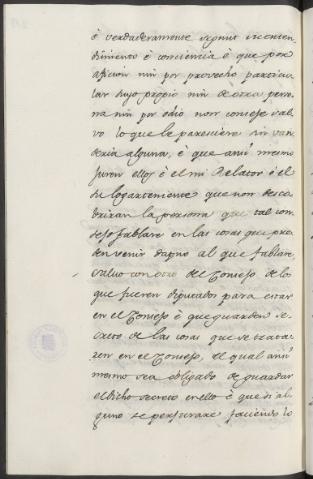 é verdaderamente segunt su enten-
dimiento é conciencia é que por
aficion nin por provecho particu-
lar suyo propio nin de otra perso-
na nin por odio non conseje sal-
vo lo que le paresciere sin van-
deria alguna, é que ansi mesmo
juren ellos é el mi Relator é el
su logarteniente que non descu-
brirán la persona que tal con-
sejo fablare en las cosas que pue-
den venir dapno al que fablare
salvo con otro del Consejo de lo
que fueren diputados para estar
en el Consejo é que guarden se-
creto de las cosas que se tracta-
ren en el Consejo, el qual ansi
mesmo sea obligado de guardar
el dicho secreto en ello é que si al-
guno se perjurare faciendo lo